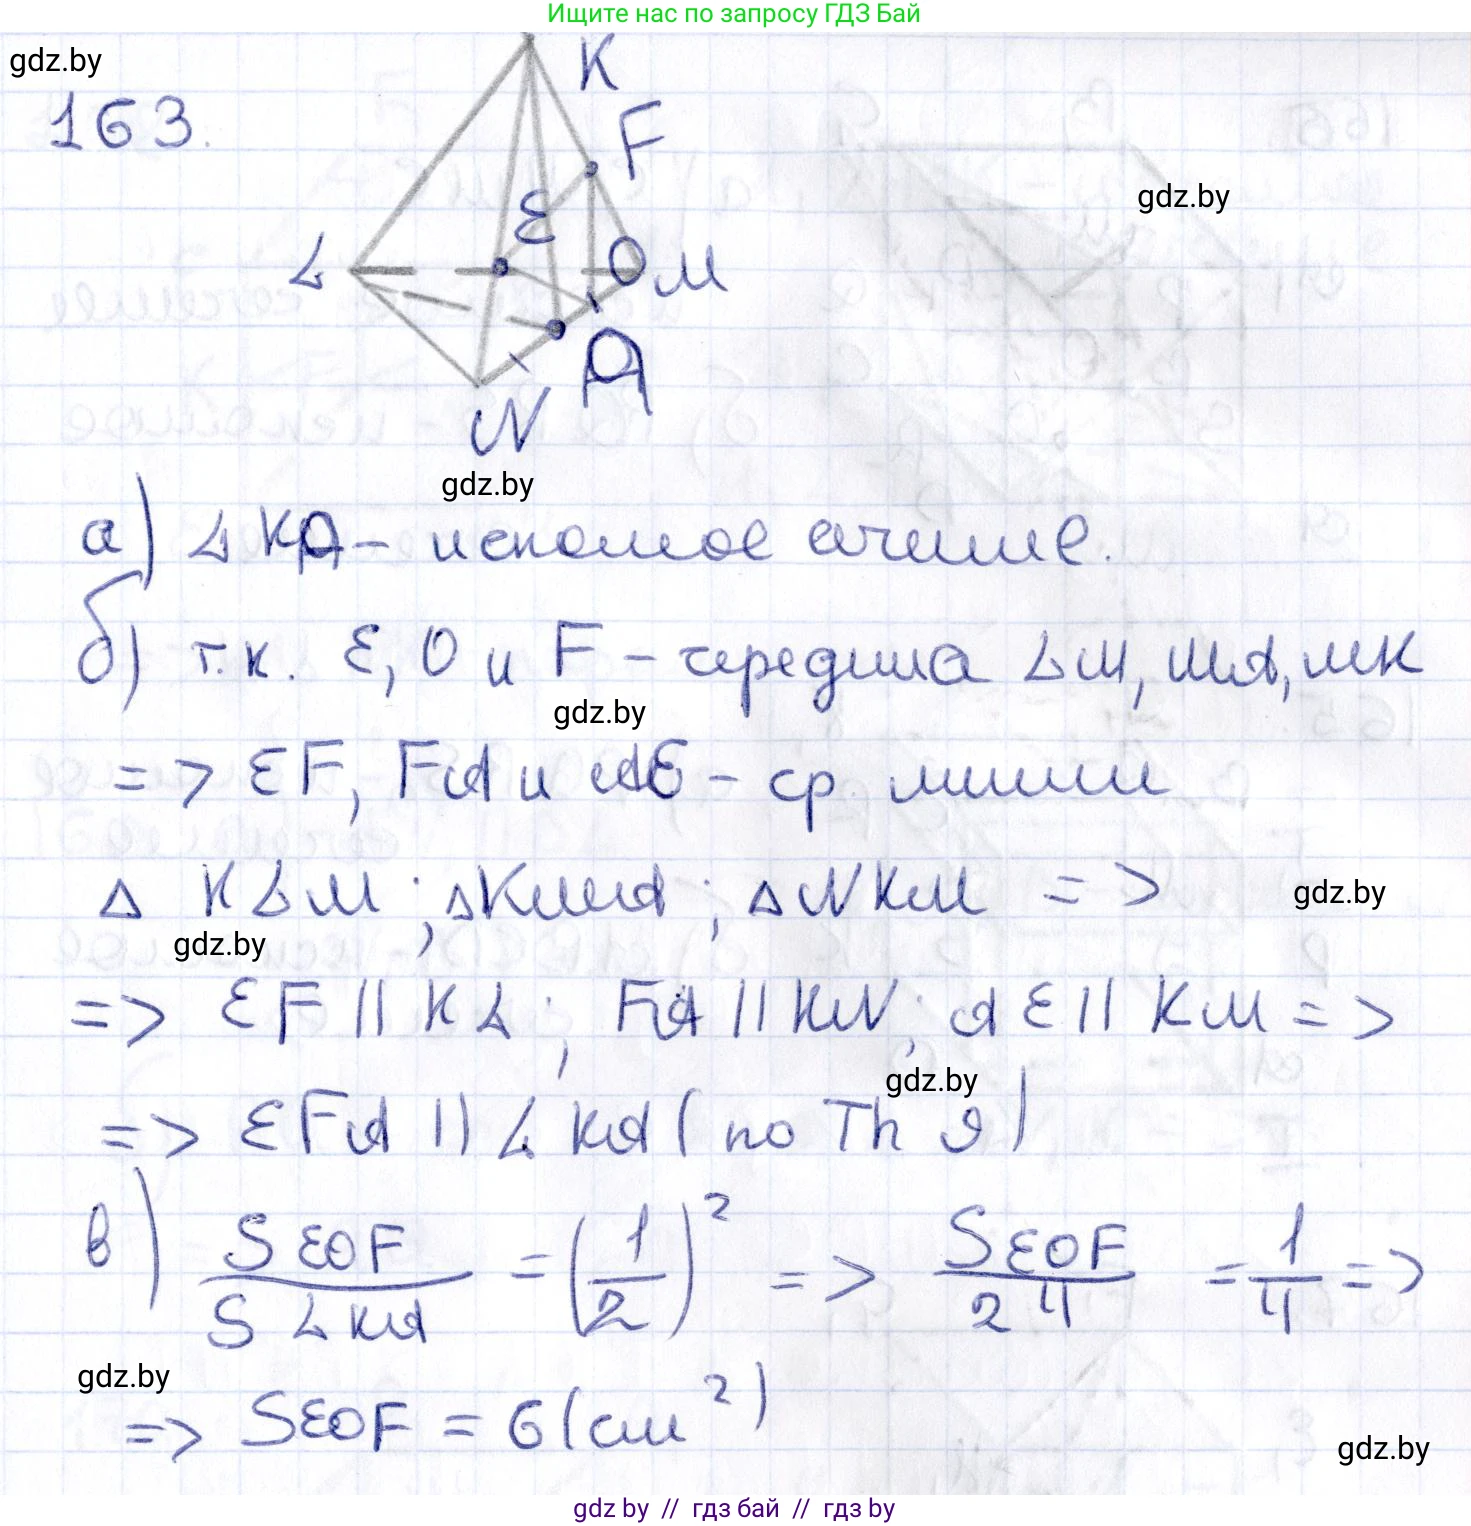 Ищите нас по запросу ГДЗ Бай
gdz.by
163.
K
F
gdz.by
E
L
O
M
A
N
gdz.by
а) LKA – искомое сечение.
б) т.к. E, O и F – середина LM, MA, MK
gdz.by
=> EF, FA и AE – ср. линии
Δ KLM; ΔKMA; Δ NKM =>
gdz.by
gdz.by
=> EF || KL; FA || KN; AE || KM =>
gdz.by
=> EFA || LKA (по Th 9)
в) S EOF / S LKA = (1/2)² => S EOF / 24 = 1/4 =>
gdz.by
=> SEOF = 6 (см²)
gdz.by
gdz.by // гдз бай // гдз by